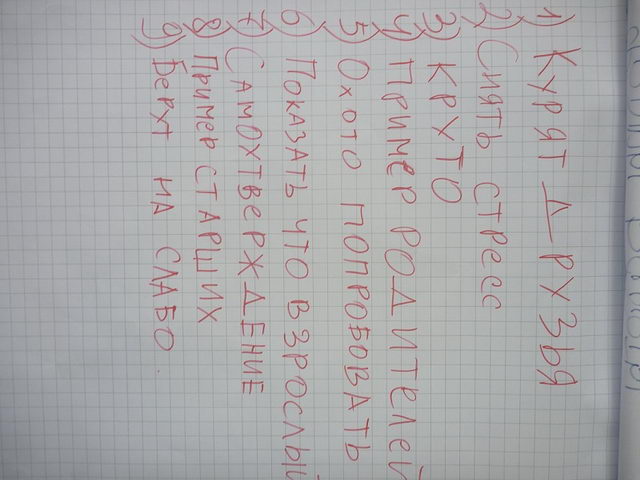 1) Курят Дрхзья
2) Снять стресс
3) Круто
4) Пример родителей
5) Охото попробовать
6) Показать что взрослый
7) Самохтверждение
8) Пример старших
9) Берхт на слабо